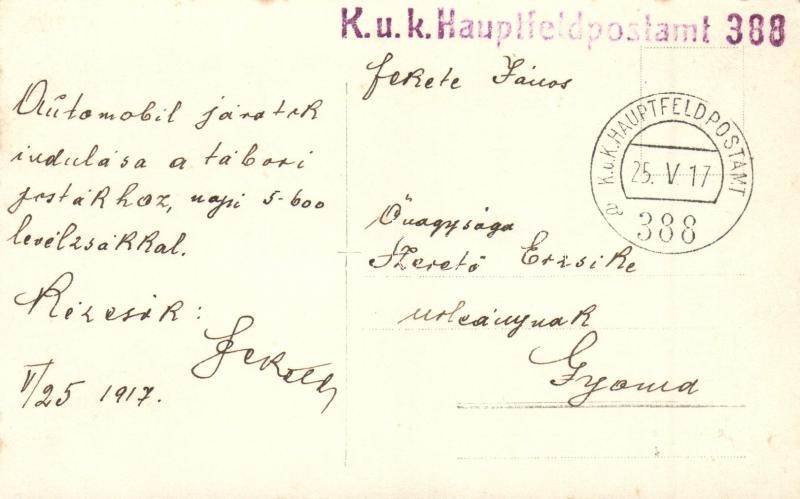 K.u.k. Hauptfeldpostamt 388
Fekete János
K.u.K. HAUPTFELDPOSTAMT
25. V 17
388
a
Automobil járatok
indulása a tábori
postákhoz, napi 5-600
levélzsákkal.
Kézcsók:
Fekete
V/25 1917.
Őnagysága
Szerető Erzsike
urleánynak
Gyoma